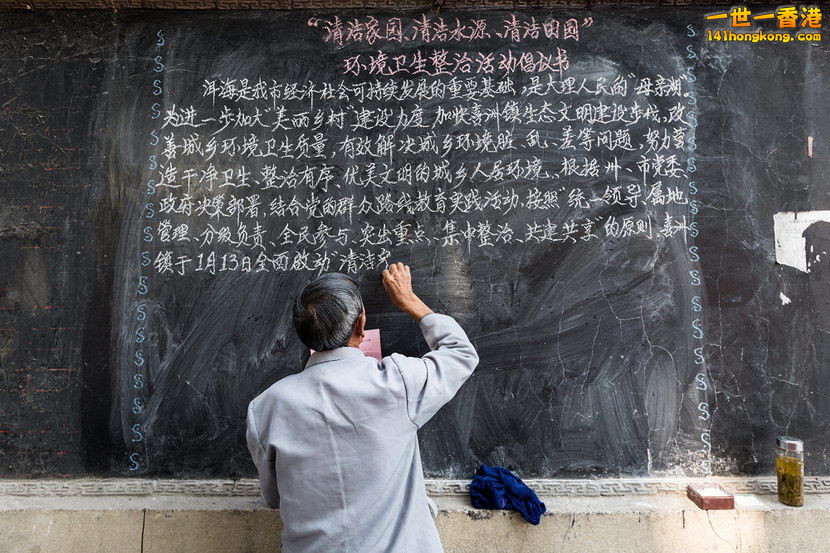 一世一香港
141hongkong.com
“清洁家园、清洁水源、清洁田园”
环境卫生整治活动倡议书
洱海是我市经济社会可持续发展的重要基础，是大理人民的“母亲湖”。
为进一步加大“美丽乡村”建设力度，加快喜洲镇生态文明建设步伐，改
善城乡环境卫生质量，有效解决城乡环境脏、乱、差等问题，努力营
造干净卫生、整治有序、优美文明的城乡人居环境、根据州、市党委、
政府决策部署，结合党的群众路线教育实践活动，按照“统一领导、属地
管理、分级负责、全民参与、突出重点、集中整治、共建共享”的原则，喜洲
镇于1月13日全面启动“清洁家